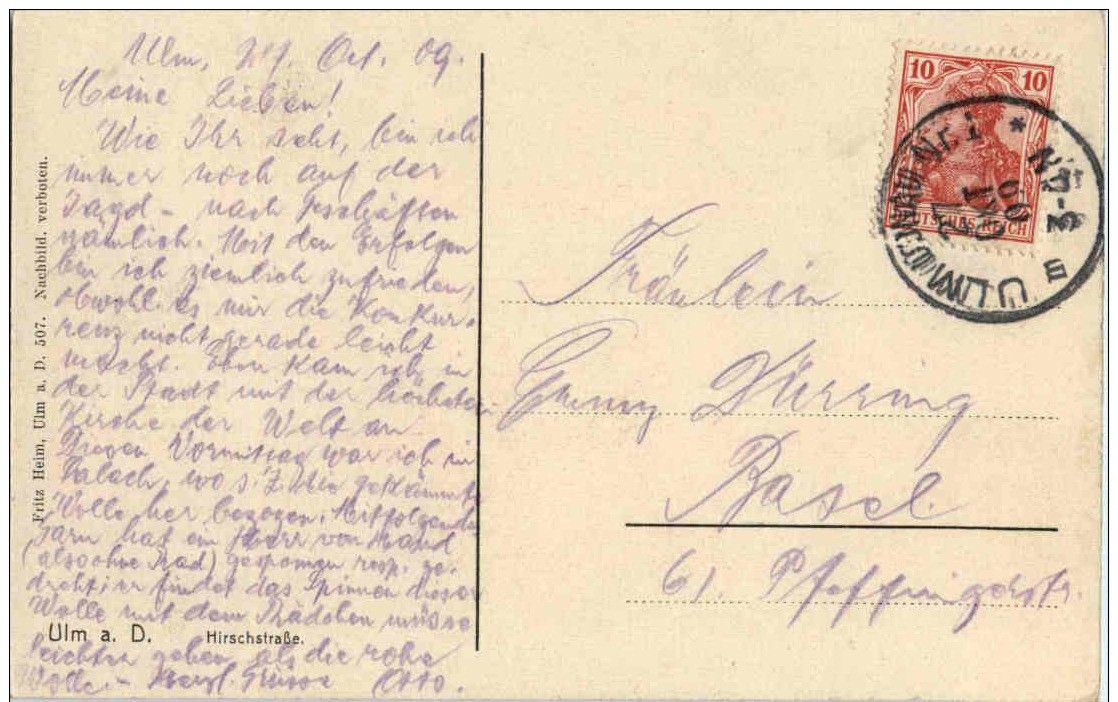 Ulm, 24. Oct. 09.
Meine Lieben!
Wie Ihr seht, bin ich
immer noch auf der
Jagd – nach Geschäften
nämlich. Mit den Erfolgen
bin ich ziemlich zufrieden,
obwohl es mir die Konkur-
renz nicht gerade leicht
macht. Eben kam ich in
der Stadt mit der höchsten
Kirche der Welt an.
Vormittag war ich in
wo s. Z. die gekämmte
Wolle her bezogen. Mitfolgende
Garn hat ein Herr von Hand
(also ohne Rad) gesponnen resp. ge-
dreht; er findet das Spinnen dieser
Wolle mit dem Rädchen müsse
leichter gehen als die rohe
Wolle. – Herzl. Grüsse Otto.
Ulm a. D. Hirschstraße.
Fritz Heim, Ulm a. D. 507. Nachbild. verboten.
10 10
DEUTSCHES REICH
ULM
Nr 1
Fräulein
Düring
Basel
61 Pfeffingerstr.